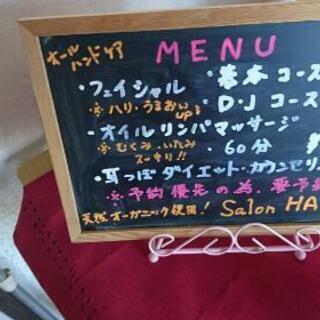 オールハンドケア
MENU
・フェイシャル
※ハリ・うるおいup♪
・基本コース
・D・Jコース
・オイルリンパマッサージ
※むくみ・いたみ
スッキリ!!
・60分
・耳つぼダイエット・カウンセリ
※予約優先の為、要予約
天然オーガニック使用! Salon HA